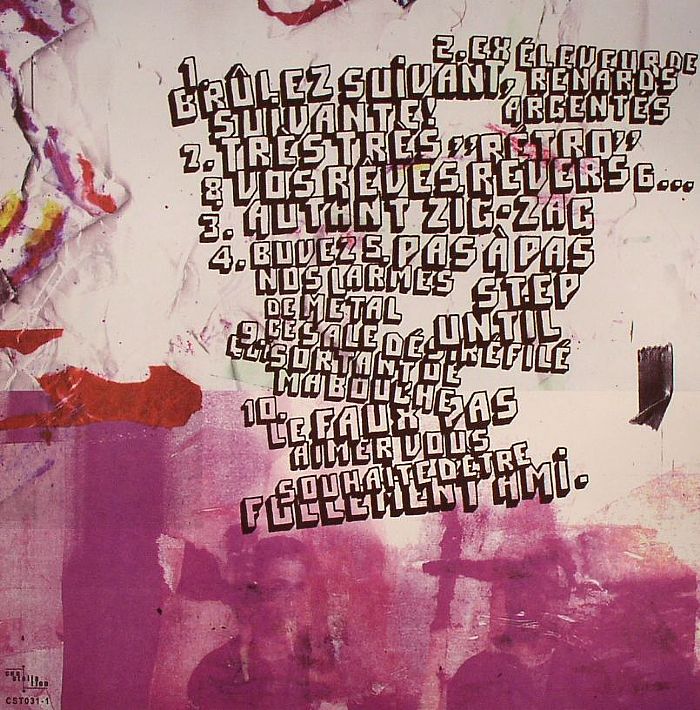 1.
BRÛLEZ SUIVANT,
SUIVANTE!
2. EX ÉLEVEUR DE
RENARDS
ARGENTÉS
7. TRÈS TRÈS ,,RÉTRO"
8. VOS RÊVES REVERS 6...
3. AUTANT ZIG-ZAG
4. BUVEZ
NOS LARMES
DE METAL
5. PAS À PAS
STEP
UNTIL
9. CE SALE DÉSIR ÉFILÉ
QUI SORTANT DE
MA BOUCHE
10.
LE FAUX PAS
AIMER VOUS
SOUHAITE D'ÊTRE
FOLLEMENT AMI.
CST031-1